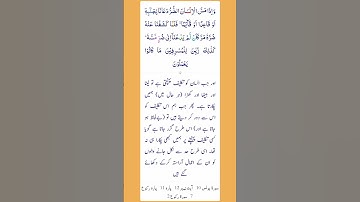 وَإِذَا مَسَّ الْإِنْسَانَ الضُّرُّ دَعَانَا لِجَنْبِهِ
أَوْ قَاعِدًا أَوْ قَائِمًا فَلَمَّا كَشَفْنَا عَنْهُ
ضُرَّهُ مَرَّ كَأَنْ لَمْ يَدْعُنَا إِلَى ضُرٍّ مَسَّهُ
كَذَٰلِكَ زُيِّنَ لِلْمُسْرِفِينَ مَا كَانُوا
يَعْمَلُونَ
اور جب انسان کو تکلیف پہنچتی ہے تو لیٹا
اور بیٹھا اور کھڑا (ہر حال میں) ہمیں
پکارتا ہے۔ پھر جب ہم اس تکلیف کو
اس سے دور کر دیتے ہیں تو (بےلحاظ ہو
جاتا ہے اور) اس طرح گزر جاتا ہے گویا
کسی تکلیف پہنچنے پر ہمیں کبھی پکارا ہی نہ
تھا۔ اسی طرح حد سے نکل جانے والوں
کو ان کے اعمال آراستہ کرکے دکھائے
گئے ہیں